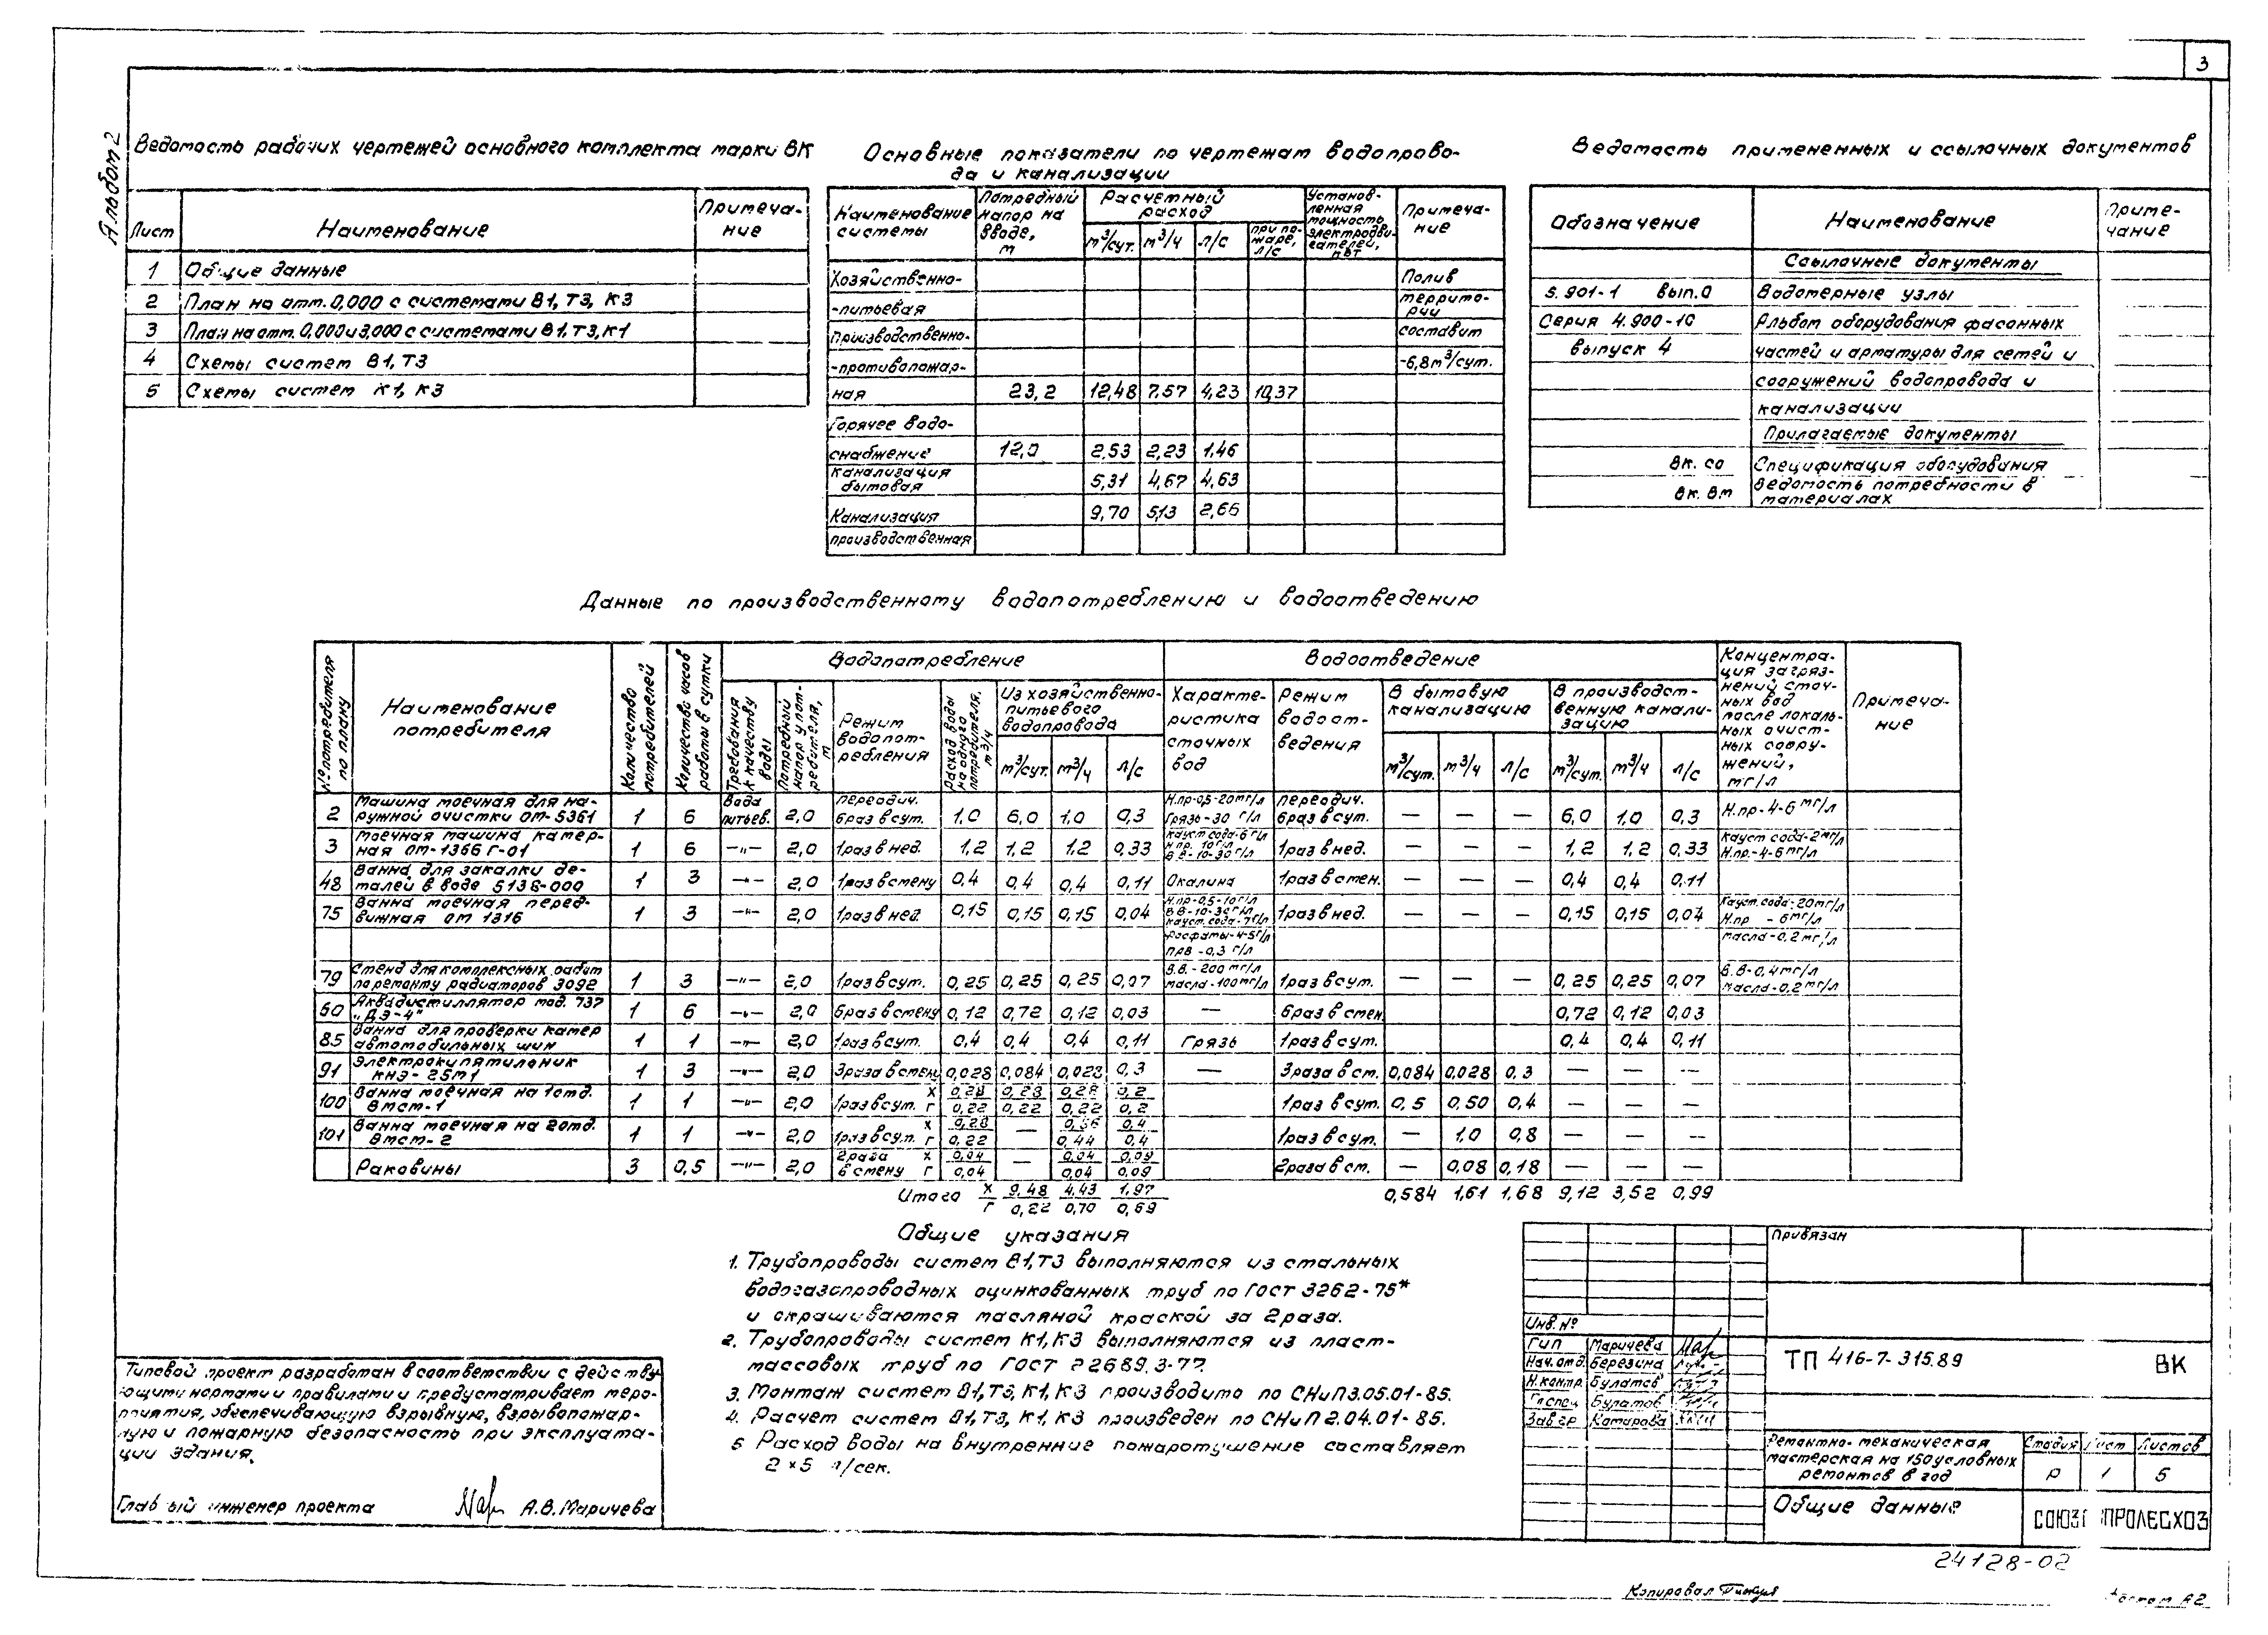 3
Альбом 2
Ведомость рабочих чертежей основного комплекта марки ВК
Лист Наименование Примечание
1 Общие данные
2 План на отм. 0,000 с системами В1, Т3, К3
3 План на отм. 0,000 и 3,000 с системами В1, Т3, К1
4 Схемы систем В1, Т3
5 Схемы систем К1, К3
Основные показатели по чертежам водопрово-
да и канализации
Наименование системы Потребный напор на вводе, м Расчетный расход м³/сут. м³/ч л/с при пожаре, л/с Установленная мощность электродвигателей, кВт Примечание
Хозяйственно- Полив
-питьевая территории
производственно- составит
-противопожар- -6,8 м³/сут.
ная 23,2 12,48 7,57 4,23 10,37
Горячее водо-
снабжение 12,0 2,53 2,23 1,46
Канализация
бытовая 5,31 4,67 4,63
Канализация 9,70 5,13 2,66
производственная
Ведомость примененных и ссылочных документов
Обозначение Наименование Примечание
Ссылочные документы
5.901-1 вып.0 Водомерные узлы
Серия 4.900-10 Альбом оборудования фасонных
выпуск 4 частей и арматуры для сетей и
сооружений водопровода и
канализации
Прилагаемые документы
ВК. СО Спецификация оборудования
ВК. ВМ Ведомость потребности в
материалах
Данные по производственному водопотреблению и водоотведению
№ потребителя по плану Наименование потребителя Количество потребителей Количество часов работы в сутки Водопотребление Водоотведение Концентрация загрязнений сточных вод после локальных очистных сооружений, мг/л Примечание
Требования к качеству воды Потребный напор у потребителя, м Режим водопотребления Расход воды на одного потребителя, м³/ч Из хозяйственно-питьевого водопровода Характеристика сточных вод Режим водоотведения В бытовую канализацию В производственную канализацию
м³/сут. м³/ч л/с м³/сут. м³/ч л/с м³/сут. м³/ч л/с
2 Машина моечная для наружной очистки ОМ-5361 1 6 Вода питьев. 2,0 переодич. 6 раз в сут. 1,0 6,0 1,0 0,3 Н.пр-0,5-20 мг/л Грязь-30 г/л переодич. 6 раз в сут. — — — 6,0 1,0 0,3 Н.пр-4-6 мг/л
3 Моечная машина камерная ОМ-1366 Г-01 1 6 —"— 2,0 1 раз в нед. 1,2 1,2 1,2 0,33 Кауст сода-6 г/л Н.пр. 10 г/л В.В-10-30 г/л 1 раз в нед. — — — 1,2 1,2 0,33 Кауст сода-2 мг/л Н.пр.-4-6 мг/л
48 Ванна для закалки деталей в воде 5138-000 1 3 —"— 2,0 1 раз в смену 0,4 0,4 0,4 0,11 Окалина 1 раз в смен. — — — 0,4 0,4 0,11
75 Ванна моечная передвижная ОМ 1316 1 3 —"— 2,0 1 раз в нед. 0,15 0,15 0,15 0,04 Н.пр-0,5-10 г/л В.В-10-30 г/л Кауст. сода-7 г/л 1 раз в нед. — — — 0,15 0,15 0,04 Кауст. сода-20 мг/л Н.пр - 6 мг/л
Фосфаты-4-5 г/л ПАВ-0,3 г/л масла-0,2 мг/л
79 Стенд для комплексных работ по ремонту радиаторов 3092 1 3 —"— 2,0 1 раз в сут. 0,25 0,25 0,25 0,07 В.В.-200 мг/л масла-100 мг/л 1 раз в сут. — — — 0,25 0,25 0,07 В.В-0,4 мг/л масла-0,2 мг/л
60 Аквадистиллятор мод. 737 „ДЭ-4" 1 6 —"— 2,0 6 раз в смену 0,12 0,72 0,12 0,03 — 6 раз в смен. 0,72 0,12 0,03
85 Ванна для проверки камер автомобильных шин 1 1 —"— 2,0 1 раз в сут. 0,4 0,4 0,4 0,11 Грязь 1 раз в сут. 0,4 0,4 0,11
91 Электрокипятильник КНЭ-25М1 1 3 —"— 2,0 3 раза в смену 0,028 0,084 0,028 0,3 — 3 раза в см. 0,084 0,028 0,3 — — —
100 Ванна моечная на 1 отд. ВМСМ-1 1 1 —"— 2,0 1 раз в сут. Х 0,28 0,28 0,28 0,2 Г 0,22 0,22 0,22 0,2 1 раз в сут. 0,5 0,50 0,4 — — —
101 Ванна моечная на 2 отд. ВМСМ-2 1 1 —"— 2,0 1 раз в сут. Х 0,28 — 0,56 0,4 Г 0,22 0,44 0,4 1 раз в сут. — 1,0 0,8 — — —
Раковины 3 0,5 —"— 2,0 2 раза в смену Х 0,04 — 0,04 0,09 Г 0,04 0,04 0,09 2 раза в см. — 0,08 0,18 — — —
Итого Х 9,48 4,43 1,97 Г 0,22 0,70 0,69 0,584 1,61 1,68 9,12 3,52 0,99
Общие указания
1. Трубопроводы систем В1, Т3 выполняются из стальных
водогазопроводных оцинкованных труб по ГОСТ 3262-75*
и окрашиваются масляной краской за 2 раза.
2. Трубопроводы систем К1, К3 выполняются из пласт-
массовых труб по ГОСТ 22689.3-77.
3. Монтаж систем В1, Т3, К1, К3 производить по СНиП 3.05.01-85.
4. Расчет систем В1, Т3, К1, К3 произведен по СНиП 2.04.01-85.
5 Расход воды на внутренние пожаротушение составляет
2×5 л/сек.
Типовой проект разработан в соответствии с действу-
ющими нормами и правилами и предусматривает меро-
приятия, обеспечивающую взрывную, взрывопожар-
ную и пожарную безопасность при эксплуата-
ции здания.
Главный инженер проекта А.В. Маричева
Привязан
Инв. №
ГИП Маричева
Нач. отд. Березина
Н. контр. Булатов
Гл спец Булатов
Зав гр Комарова
ТП 416-7-315.89 ВК
Ремонтно-механическая
мастерская на 150 условных
ремонтов в год
Стадия Лист Листов
Р 1 5
Общие данные
СОЮЗГИПРОЛЕСХОЗ
24128-02
Копировал
Формат А2